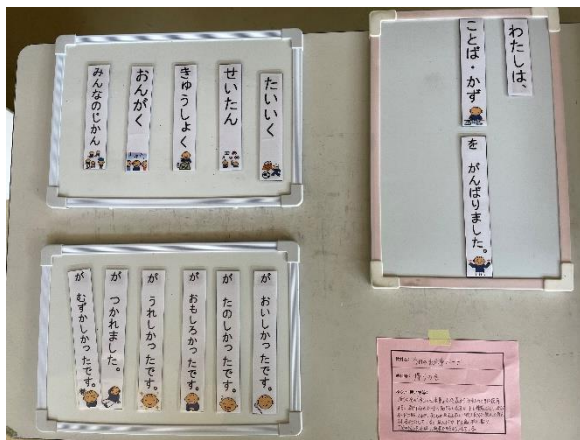 わたしは、
ことば・かず
を がんばりました。
たいいく
せいたん
きゅうしょく
おんがく
みんなのじかん
が おいしかったです。
が たのしかったです。
が おもしろかったです。
が うれしかったです。
が つかれました。
が むずかしかったです。